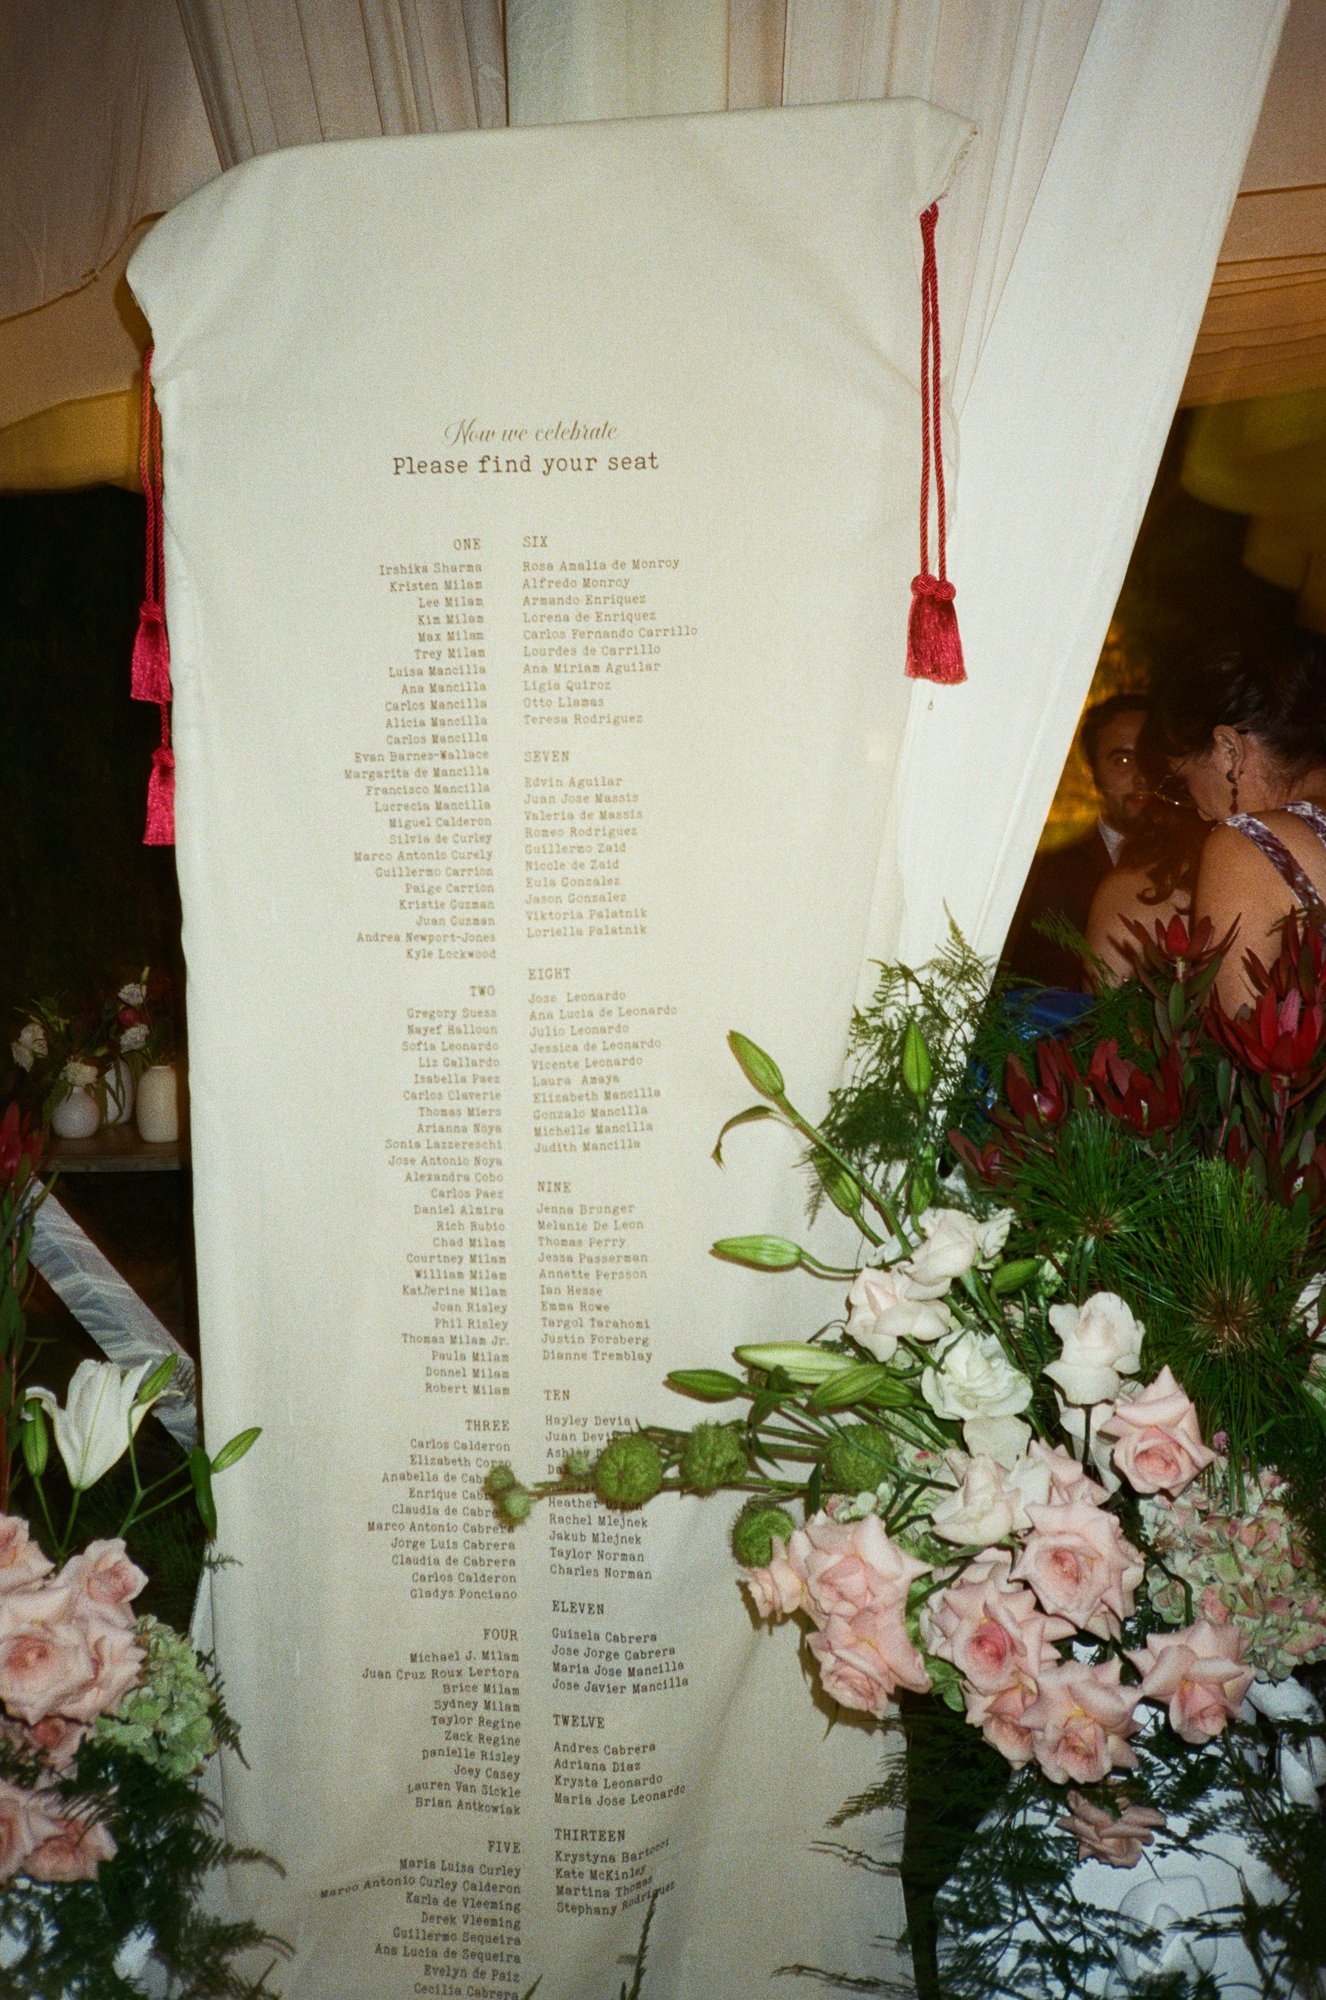 Now we celebrate
Please find your seat
ONE
Irshika Sharma
Kristen Milam
Lee Milam
Kim Milam
Max Milam
Trey Milam
Luisa Mancilla
Ana Mancilla
Carlos Mancilla
Alicia Mancilla
Carlos Mancilla
Evan Barnes-Wallace
Margarita de Mancilla
Francisco Mancilla
Lucrecia Mancilla
Miguel Calderon
Silvia de Curley
Marco Antonio Curely
Guillermo Carrion
Paige Carrion
Kristie Guzman
Juan Guzman
Andrea Newport-Jones
Kyle Lockwood
TWO
Gregory Suess
Nayef Ralloun
Sofia Leonardo
Liz Gallardo
Isabella Paez
Carlos Claverie
Thomas Miers
Arianna Noya
Sonia Lazzereschi
Jose Antonio Noya
Alexandra Cobo
Carlos Paez
Daniel Almira
Rich Rubio
Chad Milam
Courtney Milam
William Milam
Katherine Milam
Joan Risley
Phil Risley
Thomas Milam Jr.
Paula Milam
Donnel Milam
Robert Milam
THREE
Carlos Calderon
Elizabeth Corzo
Anabella de
Enrique
Claudia de Cabrera
Marco Antonio Cabrera
Jorge Luis Cabrera
Claudia de Cabrera
Carlos Calderon
Gladys Ponciano
FOUR
Michael J. Milam
Juan Cruz Roux Lertora
Brice Milam
Sydney Milam
Taylor Regine
Zack Regine
Danielle Risley
Joey Casey
Lauren Van Sickle
Brian Antkowiak
FIVE
Maria Luisa Curley
Marco Antonio Curley Calderon
Karla de Vleeming
Derek Vleeming
Guillermo Sequeira
Ana Lucia de Sequeira
Evelyn de Paiz
Cecilia Cabrera
SIX
Rosa Amalia de Monroy
Alfredo Monroy
Armando Enriquez
Lorena de Enriquez
Carlos Fernando Carrillo
Lourdes de Carrillo
Ana Miriam Aguilar
Ligia Quiroz
Otto Llamas
Teresa Rodriguez
SEVEN
Edvin Aguilar
Juan Jose Massis
Valeria de Massis
Romeo Rodriguez
Guillermo Zaid
Nicole de Zaid
Eula Gonzalez
Jason Gonzalez
Viktoria Palatnik
Loriella Palatnik
EIGHT
Jose Leonardo
Ana Lucia de Leonardo
Julio Leonardo
Jessica de Leonardo
Vicente Leonardo
Laura Amaya
Elizabeth Mancilla
Gonzalo Mancilla
Michelle Mancilla
Judith Mancilla
NINE
Jenna Brunger
Melanie De Leon
Thomas Perry
Jessa Passerman
Annette Persson
Ian Hesse
Emma Rowe
Targol Tarahomi
Justin Forsberg
Dianne Tremblay
TEN
Hayley Devia
Juan
Ashley
Heather Dixon
Rachel Mlejnek
Jakub Mlejnek
Taylor Norman
Charles Norman
ELEVEN
Guisela Cabrera
Jose Jorge Cabrera
Maria Jose Mancilla
Jose Javier Mancilla
TWELVE
Andres Cabrera
Adriana Diaz
Krysta Leonardo
Maria Jose Leonardo
THIRTEEN
Krystyna
Kate McKinley
Martina Thomas
Stephany Rodriguez